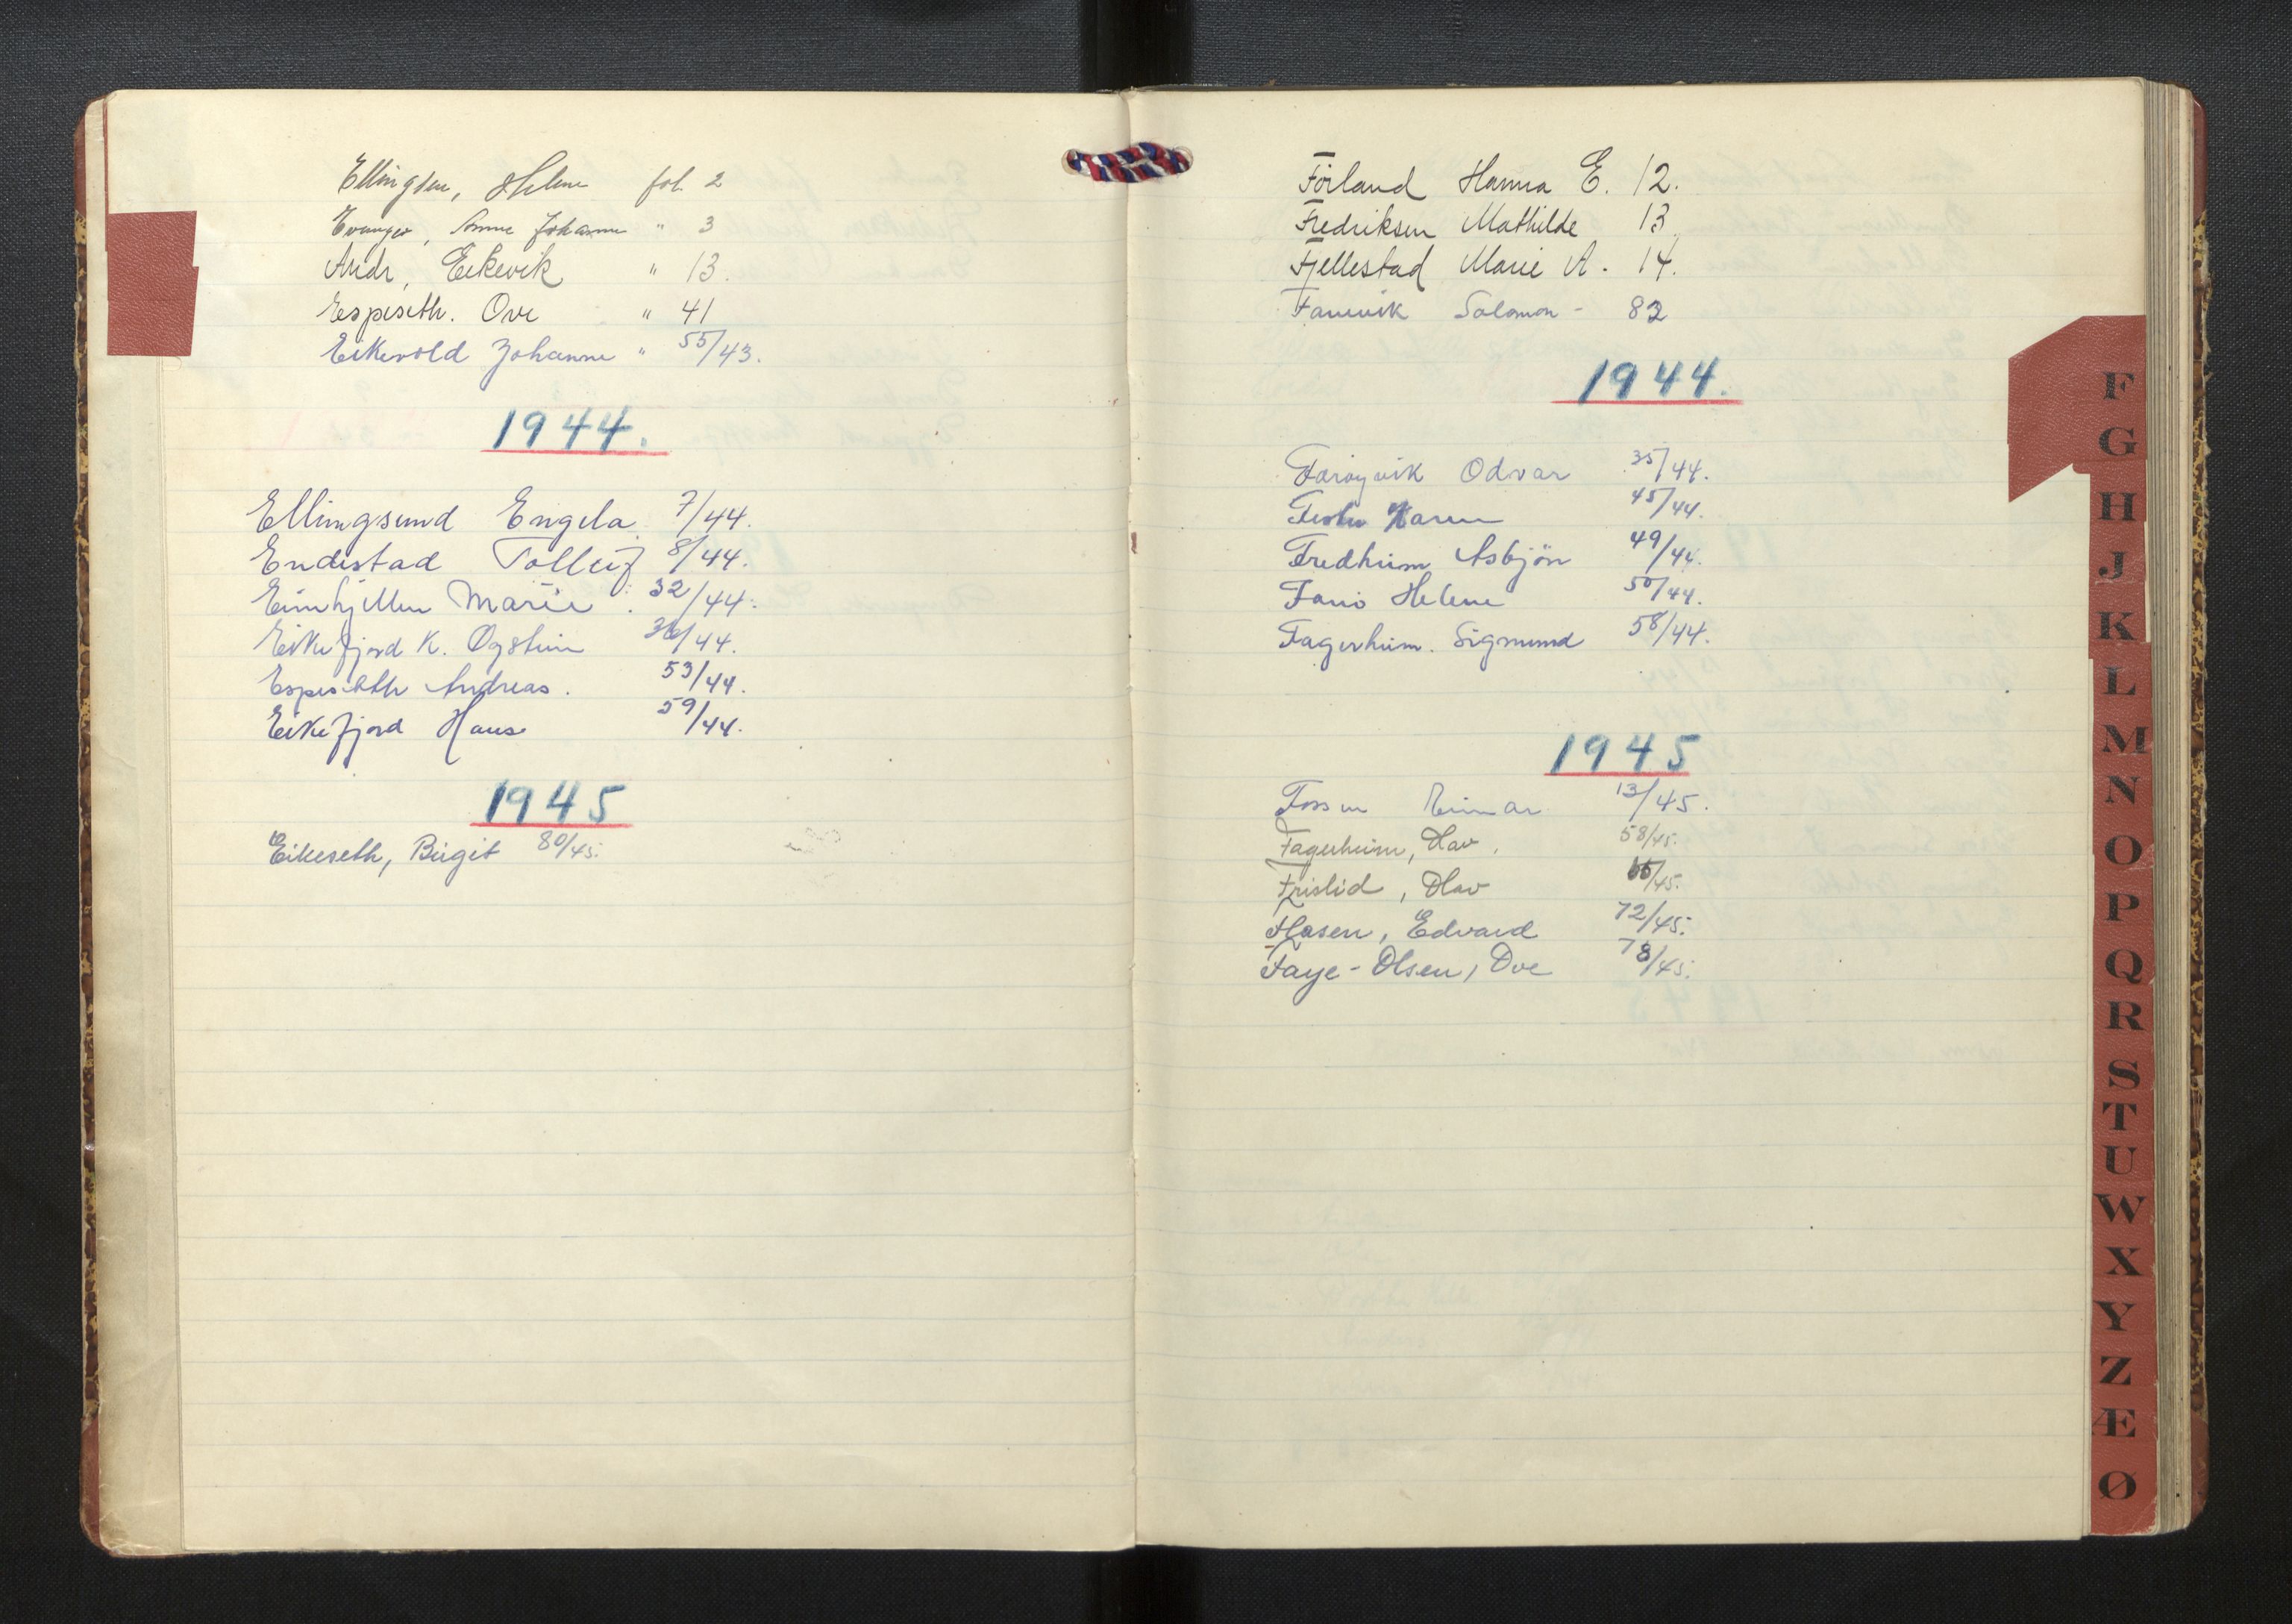 Ellingsen, Helene fol. 2
Evanger, Anne Johanne " 3
Andr, Eikevik " 13.
Espeseth. Ove " 41
Eikevold Johanne " 55/43.
1944.
Ellingsund Engela 7/44.
Endestad Tolleif 8/44.
Eimhjellen Marie 32/44.
Eikefjord K. Øystein 36/44.
Espeseth Andreas. 53/44.
Eikefjord Hans 59/44.
1945
Eikeseth, Birgit 80/45.
Förland Hanna E. 12.
Fredriksen Mathilde 13.
Fjellestad Marie A. 14.
Solomon - 82
1944.
Färøyvik Odvar 35/44.
Karen 45/44.
Fredheim Asbjön 49/44.
Helene 50/44.
Fagerheim. Sigmund 58/44.
1945
Fossen Einar 13/45.
Fagerheim, Olav. 58/45.
Frislid, Olav /45.
Flasen, Edvard 72/45.
Faye-Olsen, Ove 78/45.
F
G
H
J
K
L
M
N
O
P
Q
R
S
T
U
W
X
Y
Z
Æ
Ø